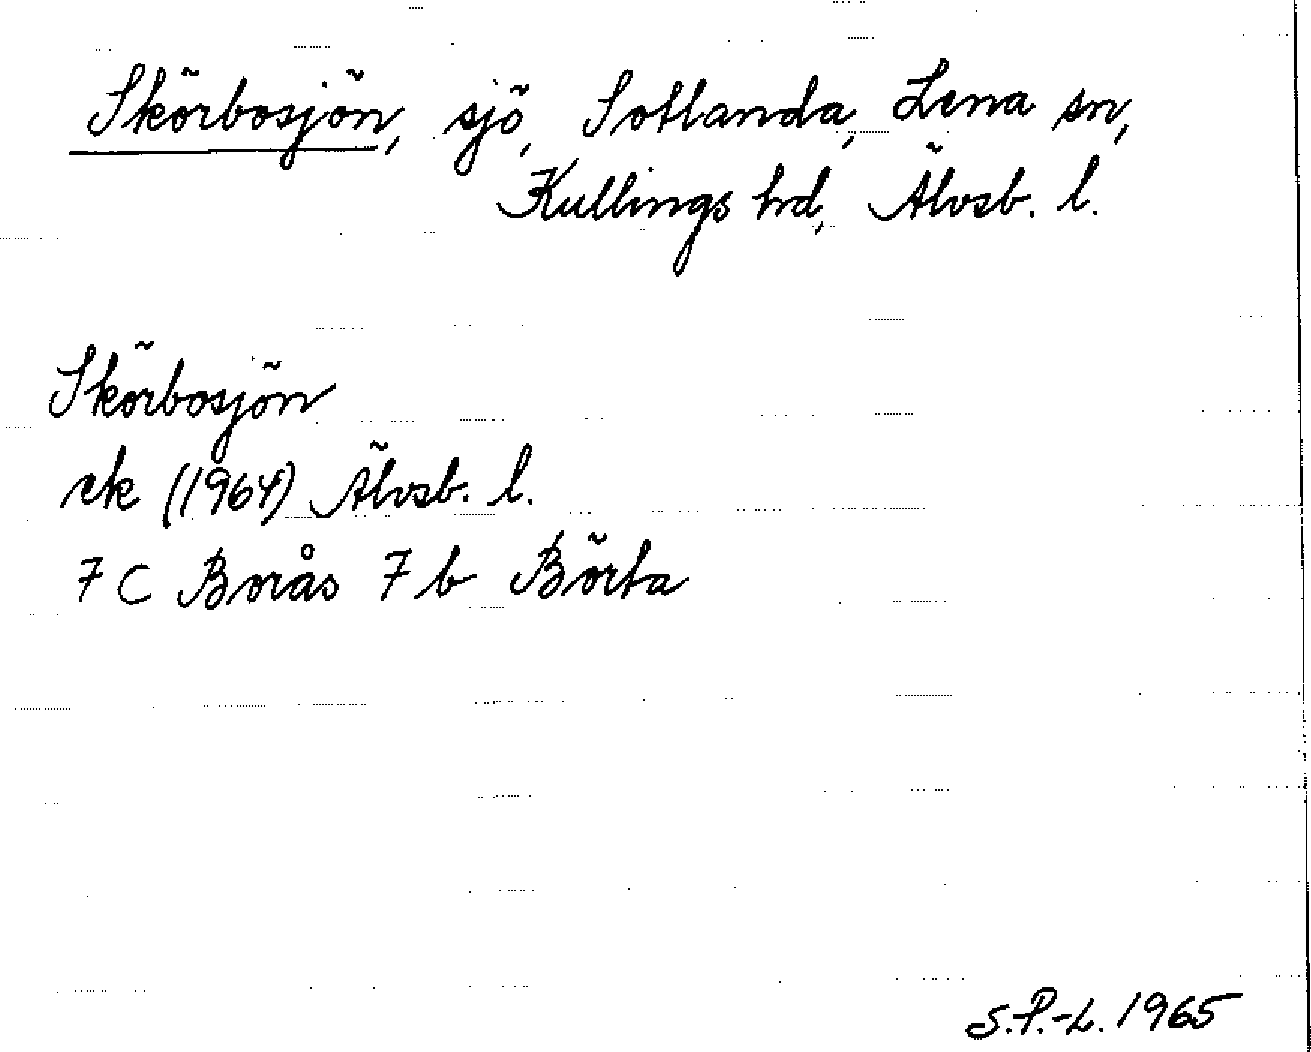 Skörbosjön, sjö, Sotlanda, Lena sn,
Kullings hd, Älvsb. l.
Skörbosjön
ek (1964) Älvsb. l.
7 C Borås 7 b Börta
S.P.-L. 1965